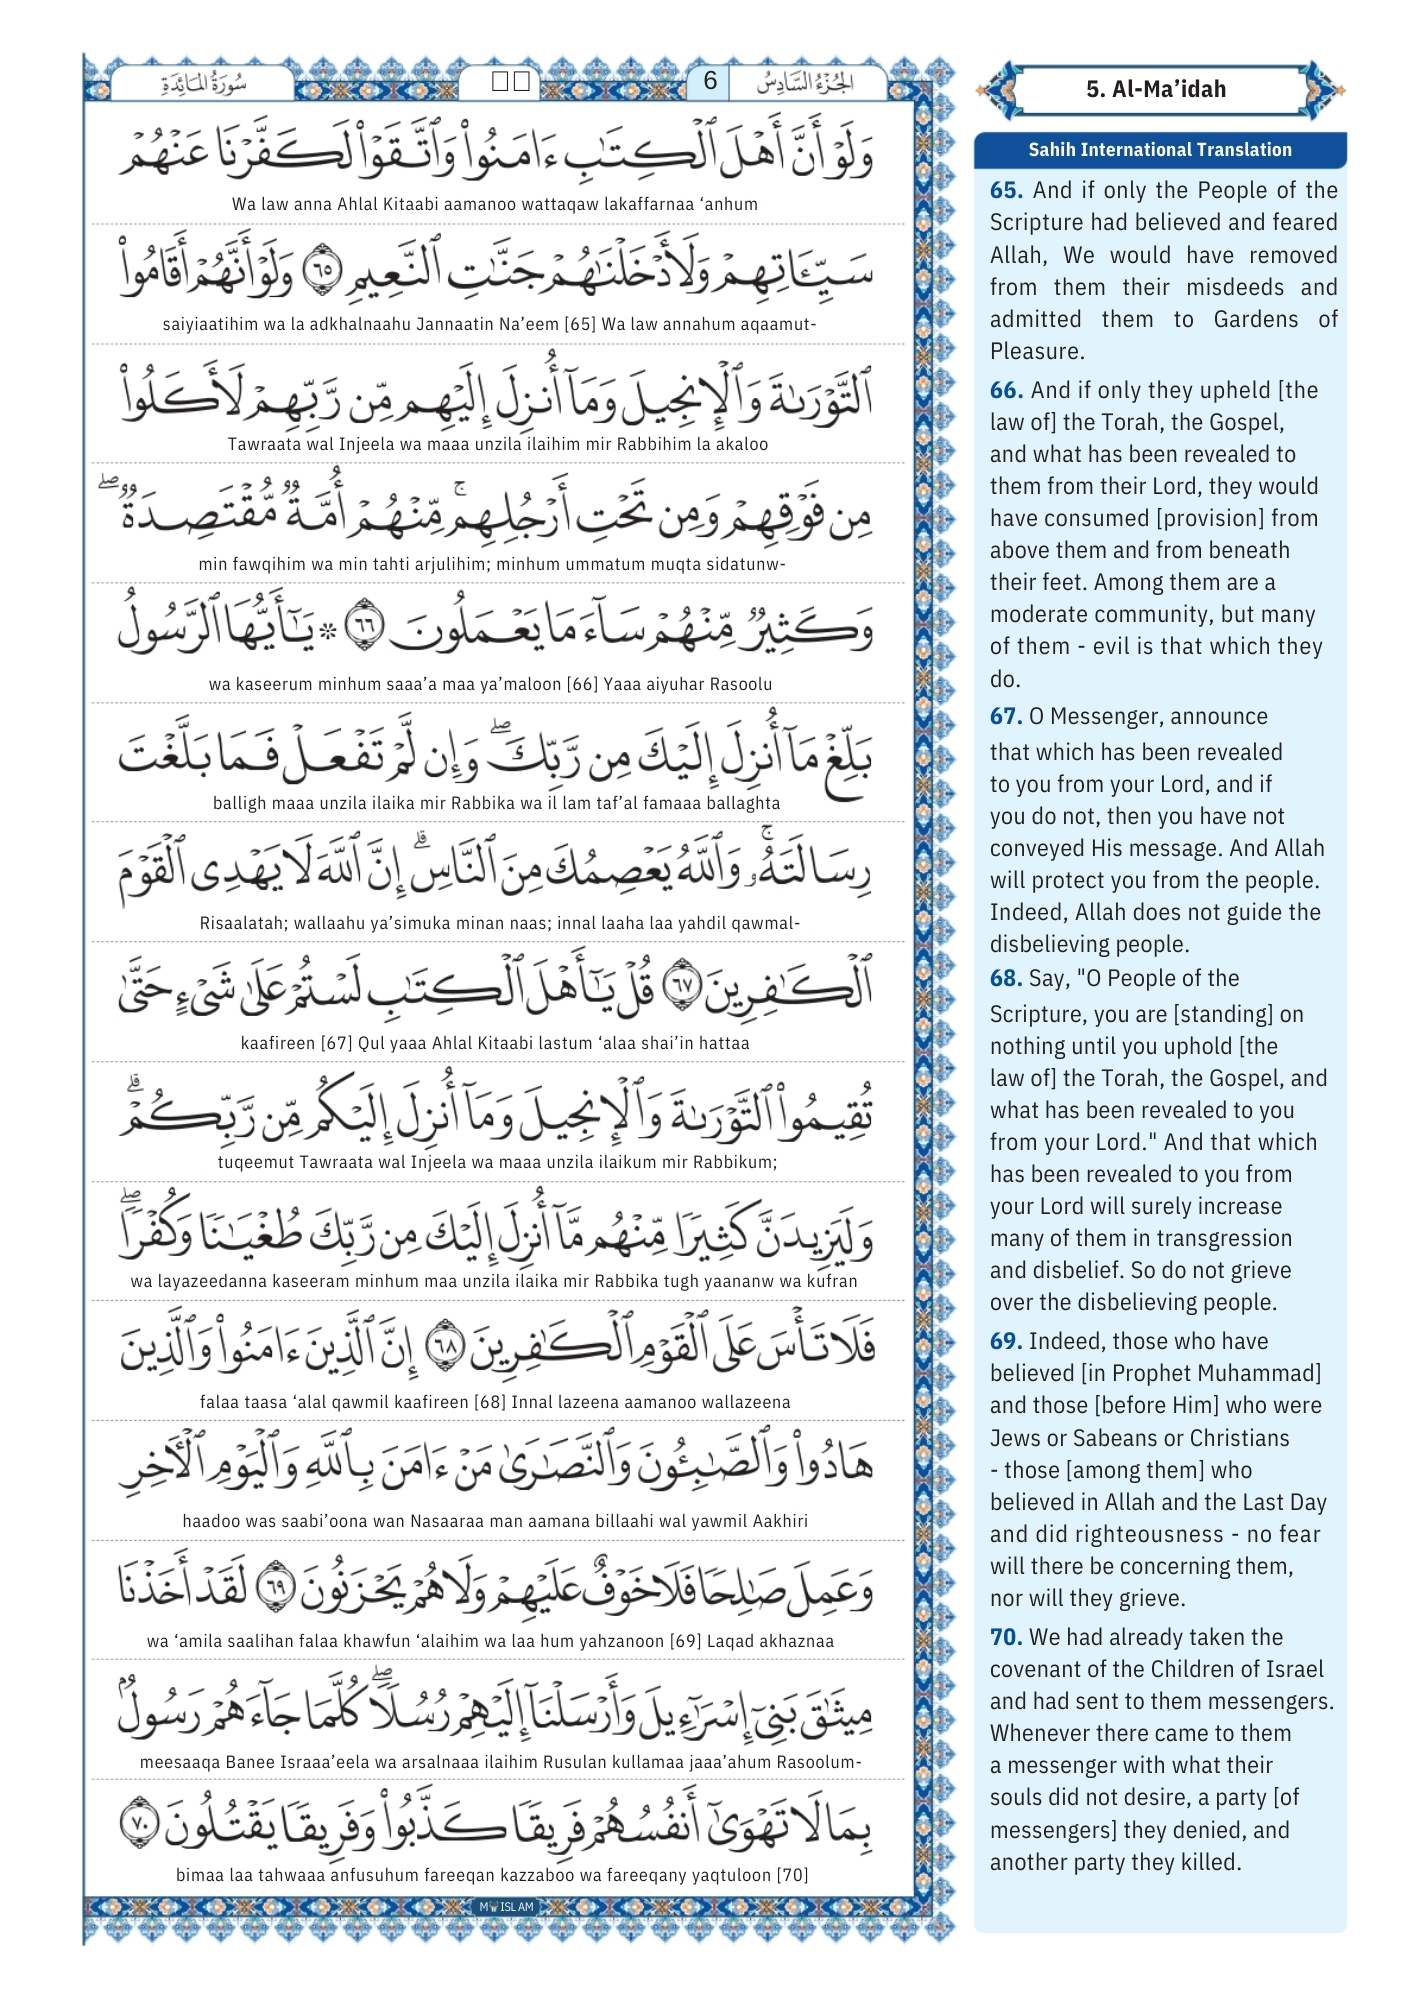 سُورَةُ المَائِدَةِ
6
الجُزْءُ السَّادِسُ
وَلَوْ أَنَّ أَهْلَ ٱلْكِتَٰبِ ءَامَنُوا۟ وَٱتَّقَوْا۟ لَكَفَّرْنَا عَنْهُمْ
Wa law anna Ahlal Kitaabi aamanoo wattaqaw lakaffarnaa ‘anhum
سَيِّـَٔاتِهِمْ وَلَأَدْخَلْنَٰهُمْ جَنَّٰتِ ٱلنَّعِيمِ ٦٥ وَلَوْ أَنَّهُمْ أَقَامُوا۟
saiyiaatihim wa la adkhalnaahu Jannaatin Na’eem [65] Wa law annahum aqaamut-
ٱلتَّوْرَىٰةَ وَٱلْإِنجِيلَ وَمَآ أُنزِلَ إِلَيْهِم مِّن رَّبِّهِمْ لَأَكَلُوا۟
Tawraata wal Injeela wa maaa unzila ilaihim mir Rabbihim la akaloo
مِن فَوْقِهِمْ وَمِن تَحْتِ أَرْجُلِهِم ۚ مِّنْهُمْ أُمَّةٌ مُّقْتَصِدَةٌ ۖ
min fawqihim wa min tahti arjulihim; minhum ummatum muqta sidatunw-
وَكَثِيرٌ مِّنْهُمْ سَآءَ مَا يَعْمَلُونَ ٦٦ * يَٰٓأَيُّهَا ٱلرَّسُولُ
wa kaseerum minhum saaa’a maa ya’maloon [66] Yaaa aiyuhar Rasoolu
بَلِّغْ مَآ أُنزِلَ إِلَيْكَ مِن رَّبِّكَ ۖ وَإِن لَّمْ تَفْعَلْ فَمَا بَلَّغْتَ
balligh maaa unzila ilaika mir Rabbika wa il lam taf’al famaaa ballaghta
رِسَالَتَهُۥ ۚ وَٱللَّهُ يَعْصِمُكَ مِنَ ٱلنَّاسِ ۗ إِنَّ ٱللَّهَ لَا يَهْدِى ٱلْقَوْمَ
Risaalatah; wallaahu ya’simuka minan naas; innal laaha laa yahdil qawmal-
ٱلْكَٰفِرِينَ ٦٧ قُلْ يَٰٓأَهْلَ ٱلْكِتَٰبِ لَسْتُمْ عَلَىٰ شَىْءٍ حَتَّىٰ
kaafireen [67] Qul yaaa Ahlal Kitaabi lastum ‘alaa shai’in hattaa
تُقِيمُوا۟ ٱلتَّوْرَىٰةَ وَٱلْإِنجِيلَ وَمَآ أُنزِلَ إِلَيْكُم مِّن رَّبِّكُمْ ۗ
tuqeemut Tawraata wal Injeela wa maaa unzila ilaikum mir Rabbikum;
وَلَيَزِيدَنَّ كَثِيرًا مِّنْهُم مَّآ أُنزِلَ إِلَيْكَ مِن رَّبِّكَ طُغْيَٰنًا وَكُفْرًا ۖ
wa layazeedanna kaseeram minhum maa unzila ilaika mir Rabbika tugh yaananw wa kufran
فَلَا تَأْسَ عَلَى ٱلْقَوْمِ ٱلْكَٰفِرِينَ ٦٨ إِنَّ ٱلَّذِينَ ءَامَنُوا۟ وَٱلَّذِينَ
falaa taasa ‘alal qawmil kaafireen [68] Innal lazeena aamanoo wallazeena
هَادُوا۟ وَٱلصَّٰبِـُٔونَ وَٱلنَّصَٰرَىٰ مَنْ ءَامَنَ بِٱللَّهِ وَٱلْيَوْمِ ٱلْـَٔاخِرِ
haadoo was saabi’oona wan Nasaaraa man aamana billaahi wal yawmil Aakhiri
وَعَمِلَ صَٰلِحًا فَلَا خَوْفٌ عَلَيْهِمْ وَلَا هُمْ يَحْزَنُونَ ٦٩ لَقَدْ أَخَذْنَا
wa ‘amila saalihan falaa khawfun ‘alaihim wa laa hum yahzanoon [69] Laqad akhaznaa
مِيثَٰقَ بَنِىٓ إِسْرَٰٓءِيلَ وَأَرْسَلْنَآ إِلَيْهِمْ رُسُلًا ۖ كُلَّمَا جَآءَهُمْ رَسُولٌۢ
meesaaqa Banee Israaa’eela wa arsalnaaa ilaihim Rusulan kullamaa jaaa’ahum Rasoolum-
بِمَا لَا تَهْوَىٰٓ أَنفُسُهُمْ فَرِيقًا كَذَّبُوا۟ وَفَرِيقًا يَقْتُلُونَ ٧٠
bimaa laa tahwaaa anfusuhum fareeqan kazzaboo wa fareeqany yaqtuloon [70]
5. Al-Ma’idah
Sahih International Translation
65. And if only the People of the
Scripture had believed and feared
Allah, We would have removed
from them their misdeeds and
admitted them to Gardens of
Pleasure.
66. And if only they upheld [the
law of] the Torah, the Gospel,
and what has been revealed to
them from their Lord, they would
have consumed [provision] from
above them and from beneath
their feet. Among them are a
moderate community, but many
of them - evil is that which they
do.
67. O Messenger, announce
that which has been revealed
to you from your Lord, and if
you do not, then you have not
conveyed His message. And Allah
will protect you from the people.
Indeed, Allah does not guide the
disbelieving people.
68. Say, "O People of the
Scripture, you are [standing] on
nothing until you uphold [the
law of] the Torah, the Gospel, and
what has been revealed to you
from your Lord." And that which
has been revealed to you from
your Lord will surely increase
many of them in transgression
and disbelief. So do not grieve
over the disbelieving people.
69. Indeed, those who have
believed [in Prophet Muhammad]
and those [before Him] who were
Jews or Sabeans or Christians
- those [among them] who
believed in Allah and the Last Day
and did righteousness - no fear
will there be concerning them,
nor will they grieve.
70. We had already taken the
covenant of the Children of Israel
and had sent to them messengers.
Whenever there came to them
a messenger with what their
souls did not desire, a party [of
messengers] they denied, and
another party they killed.